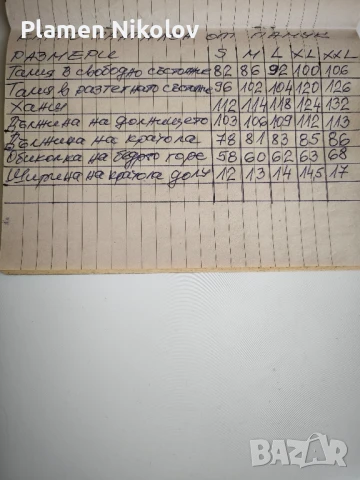 Plamen Nikolov
от памук
РАЗМЕРИ S M L XL XXL
Талия в свободно състояние 82 86 92 100 106
Талия в разтегнато състояние 96 102 104 120 126
Ханш 112 114 118 124 132
Дължина на долнището 103 106 109 112 113
Дължина на крачола 78 81 83 85 86
Обиколка на бедро горе 58 60 62 63 68
Ширина на крачола долу 12 13 14 145 17
BAZAR